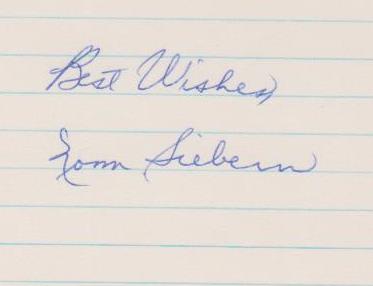 Best Wishes,
Norm Siebern